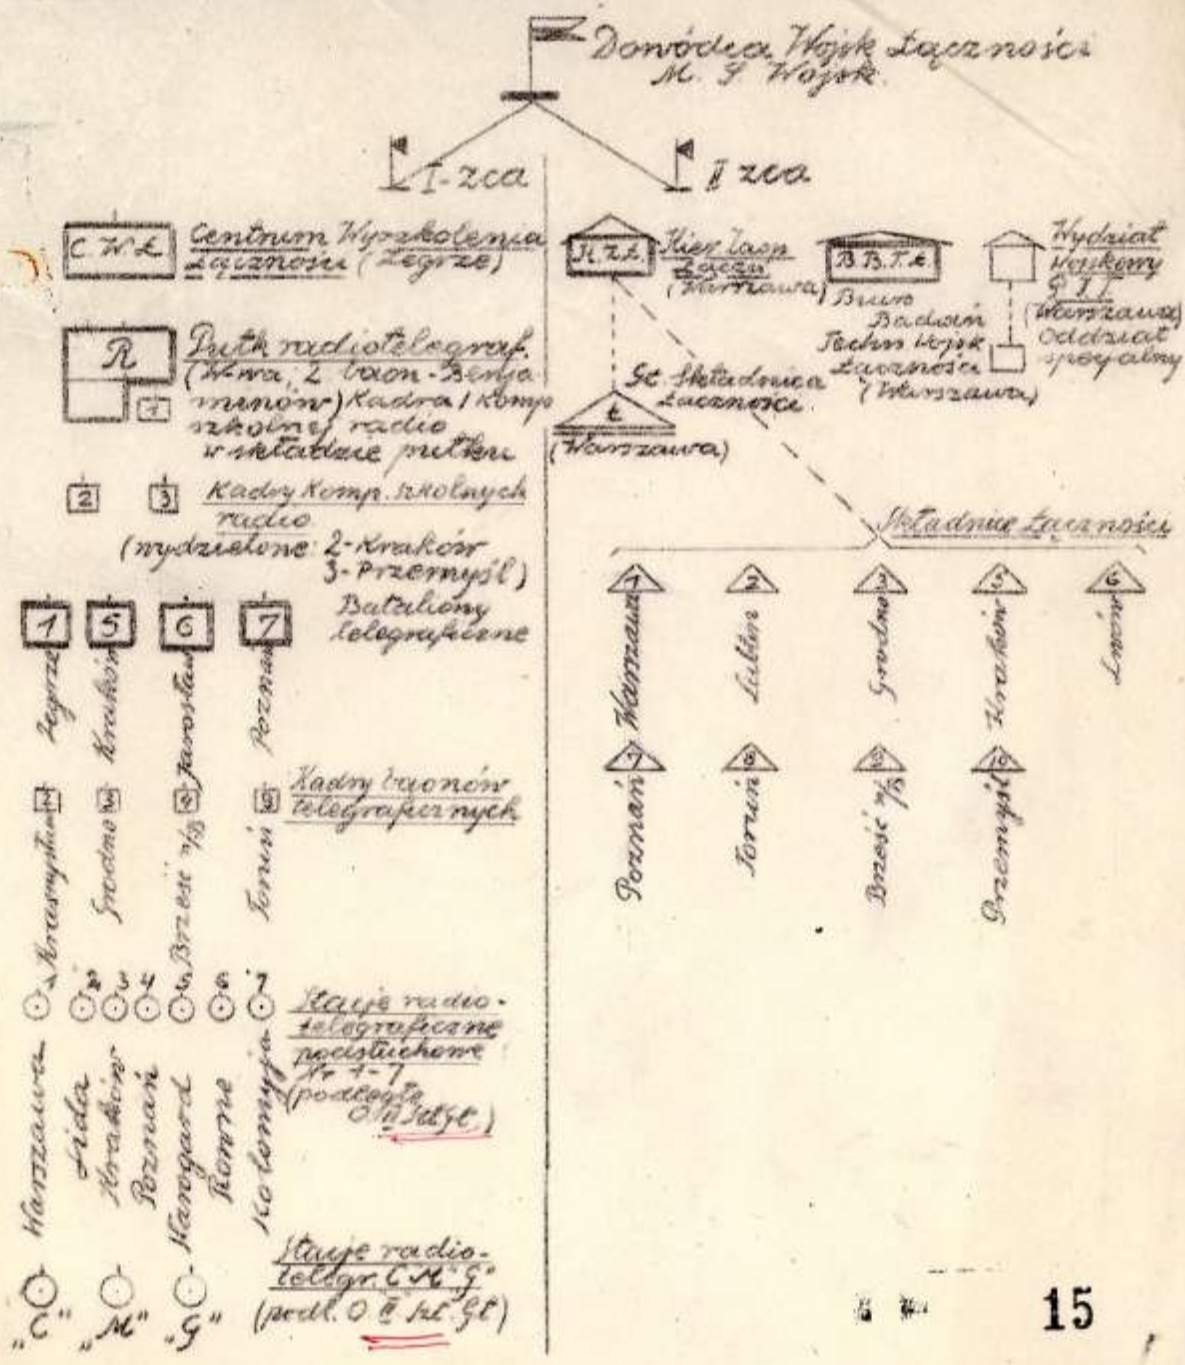 Dowódca Wojsk Łączności
M. S. Wojsk.
I-zca
II zca
C.W.Ł
Centrum Wyszkolenia
Łączności (Zegrze)
R
Pułk radiotelegraf.
(W-wa, 2 baon - Benja
minów) Kadra 1 komp
szkolnej radio
w składzie pułku
1
2
3
Kadry Komp. szkolnych
radio
(wydzielone: 2-Kraków
3-Przemyśl)
1
5
6
7
Bataliony
telegraficzne
Zegrze
Kraków
Jarosław
Poznań
Kadry baonów
telegraficznych
Krasnystaw
Grodno
Brześć n/B
Toruń
2
3
4
5
6
7
Stacje radio-
telegraficzne
podsłuchowe
Nr 1-7
(podległe
O.II Szt.Gł.)
Warszawa
Lida
Kraków
Poznań
Starogard
Równe
Kołomyja
Stacje radio-
telegr. C "M" "G"
(podl. O.II szt. Gł)
"C"
"M"
"G"
K.Z.Ł.
Kier. Zaop
Łączn
(Warszawa)
B.B.T.Ł
Biuro
Badań
Techn Wojsk
Łączności
(Warszawa)
Wydział
Wojskowy
(Warszawa)
Oddział
specjalny
Gł. Składnica
Łączności
Ł
(Warszawa)
Składnice Łączności
1
2
3
5
6
Warszawa
Lublin
Grodno
Kraków
Lwów
7
8
9
10
Poznań
Toruń
Brześć n/B
Przemyśl
15